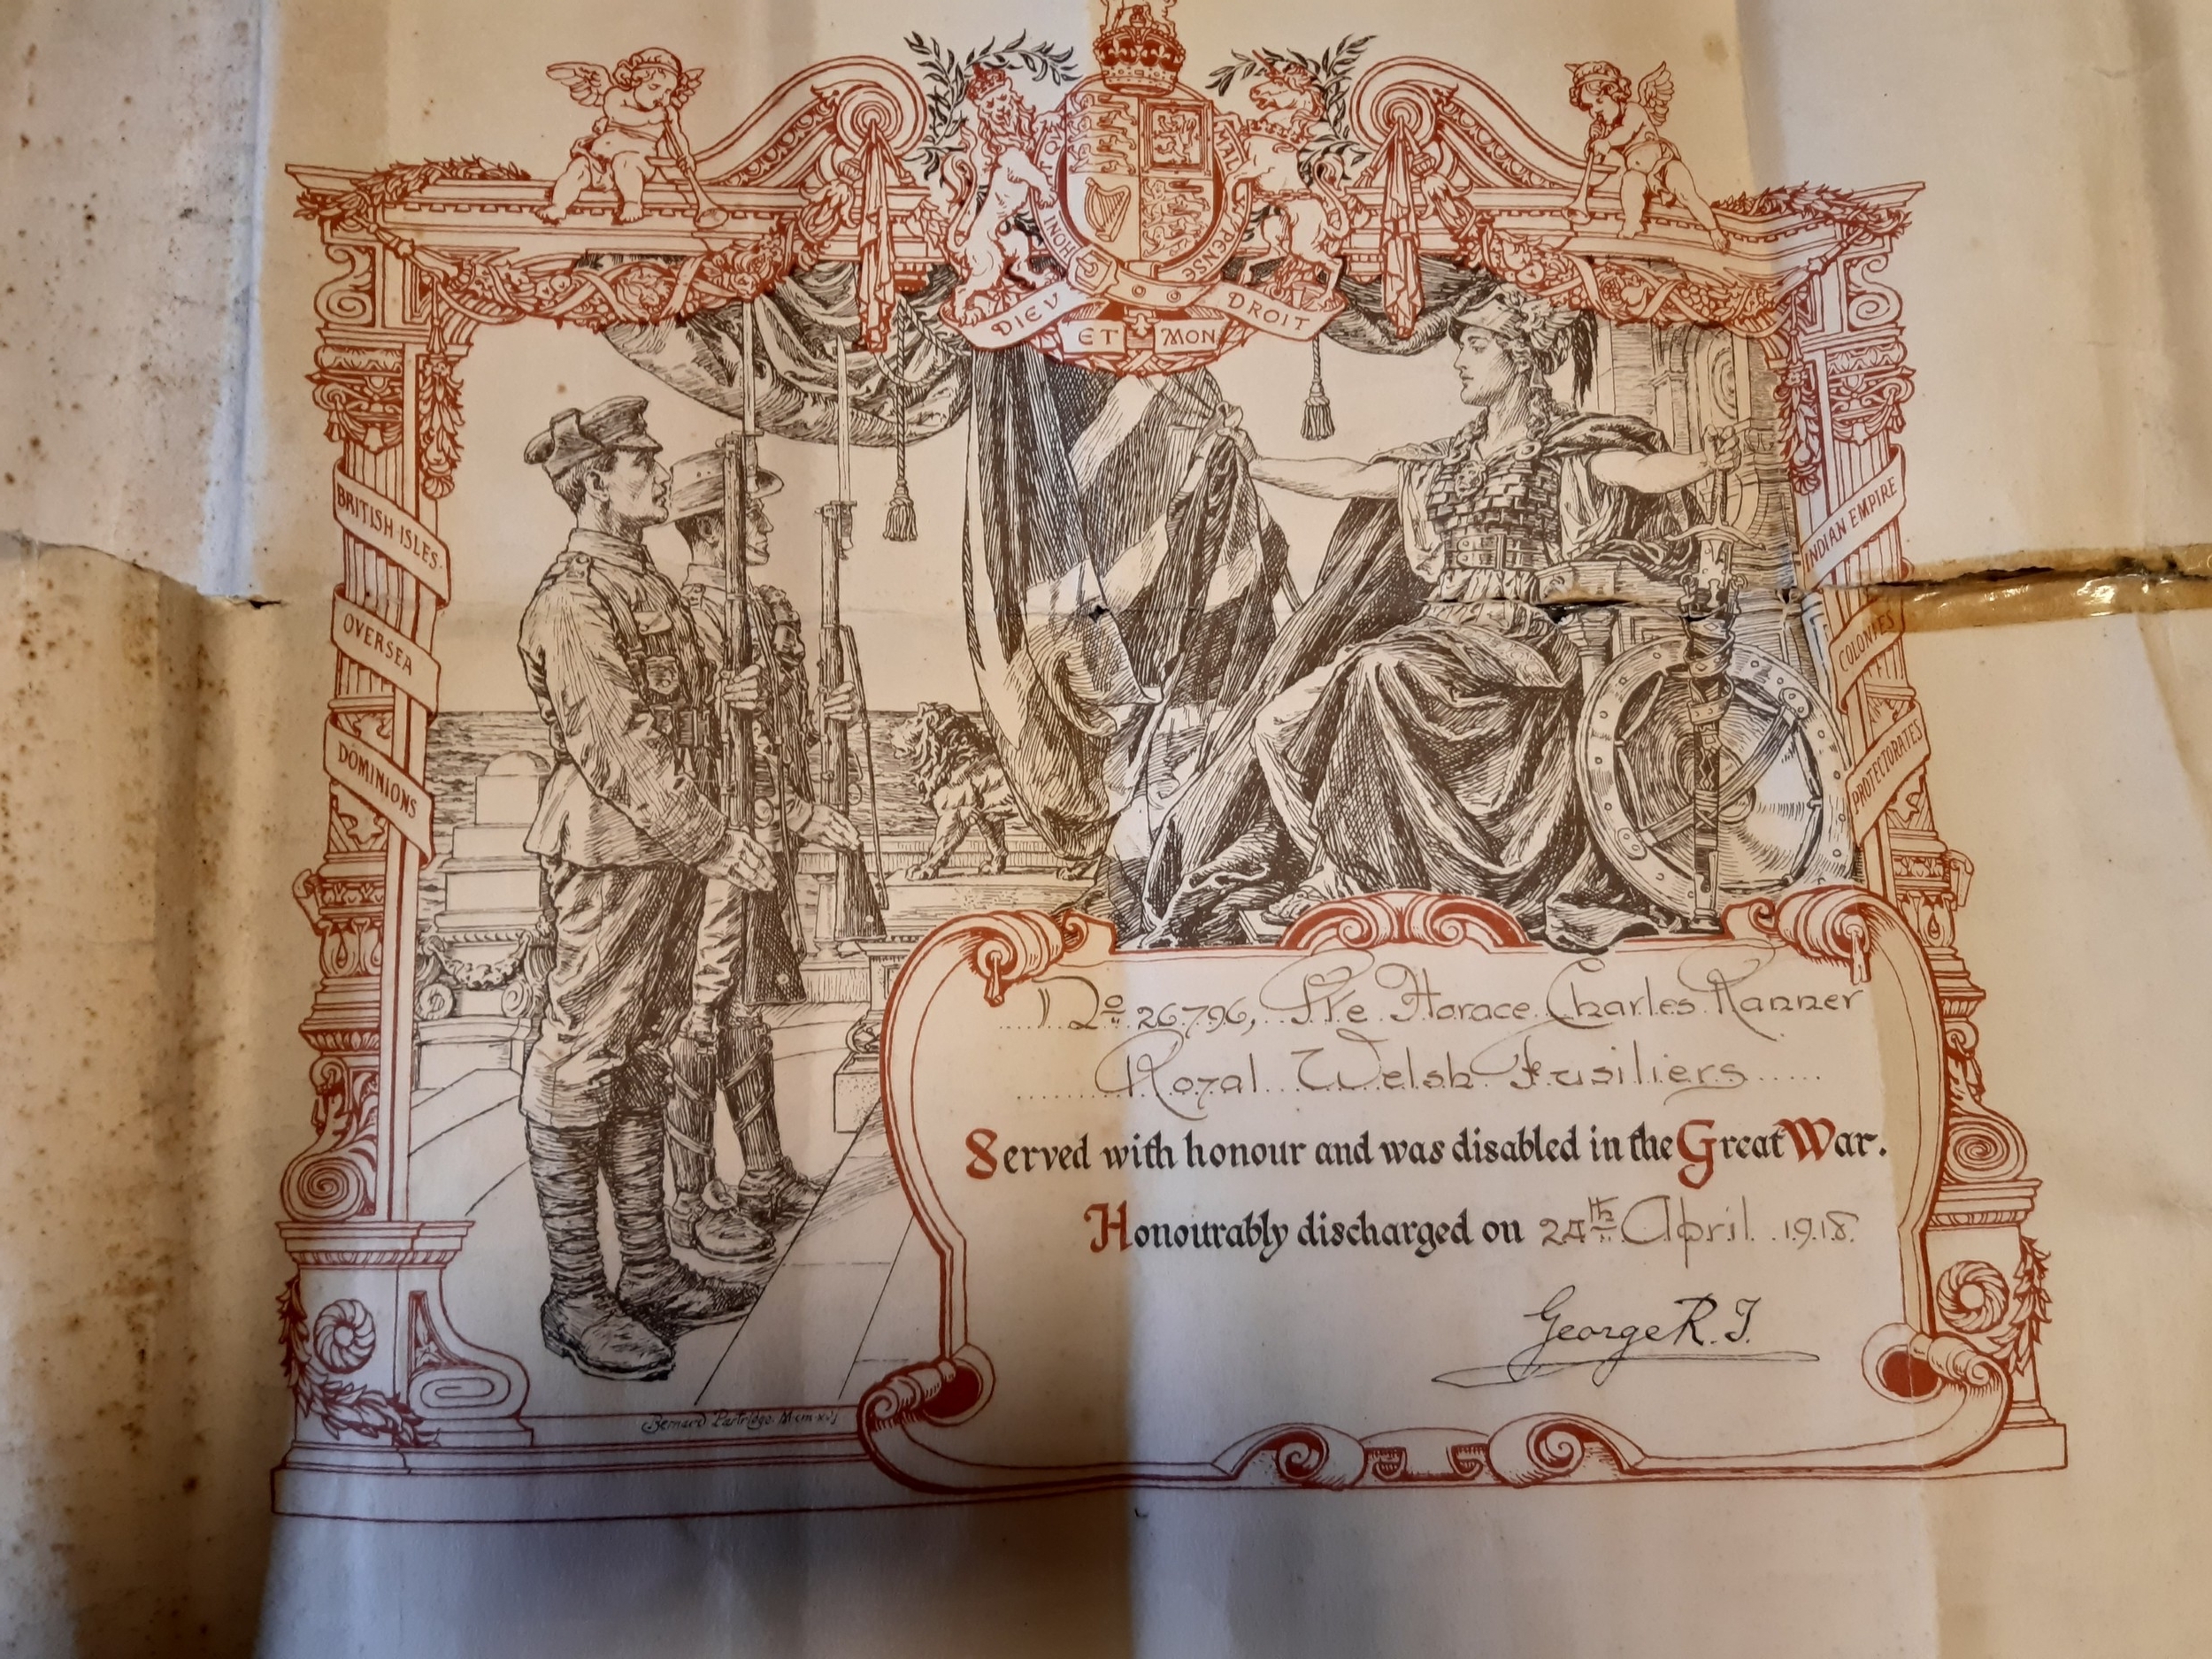 HONI
PENSE
DIEV ET MON DROIT
BRITISH ISLES.
OVERSEA
DOMINIONS
INDIAN EMPIRE
COLONIES
PROTECTORATES
No 26796, Pte Horace Charles Ranner
Royal Welsh Fusiliers
Served with honour and was disabled in the Great War.
Honourably discharged on 24th April 1918.
George R.I.
Bernard Partridge M·cm·xvj